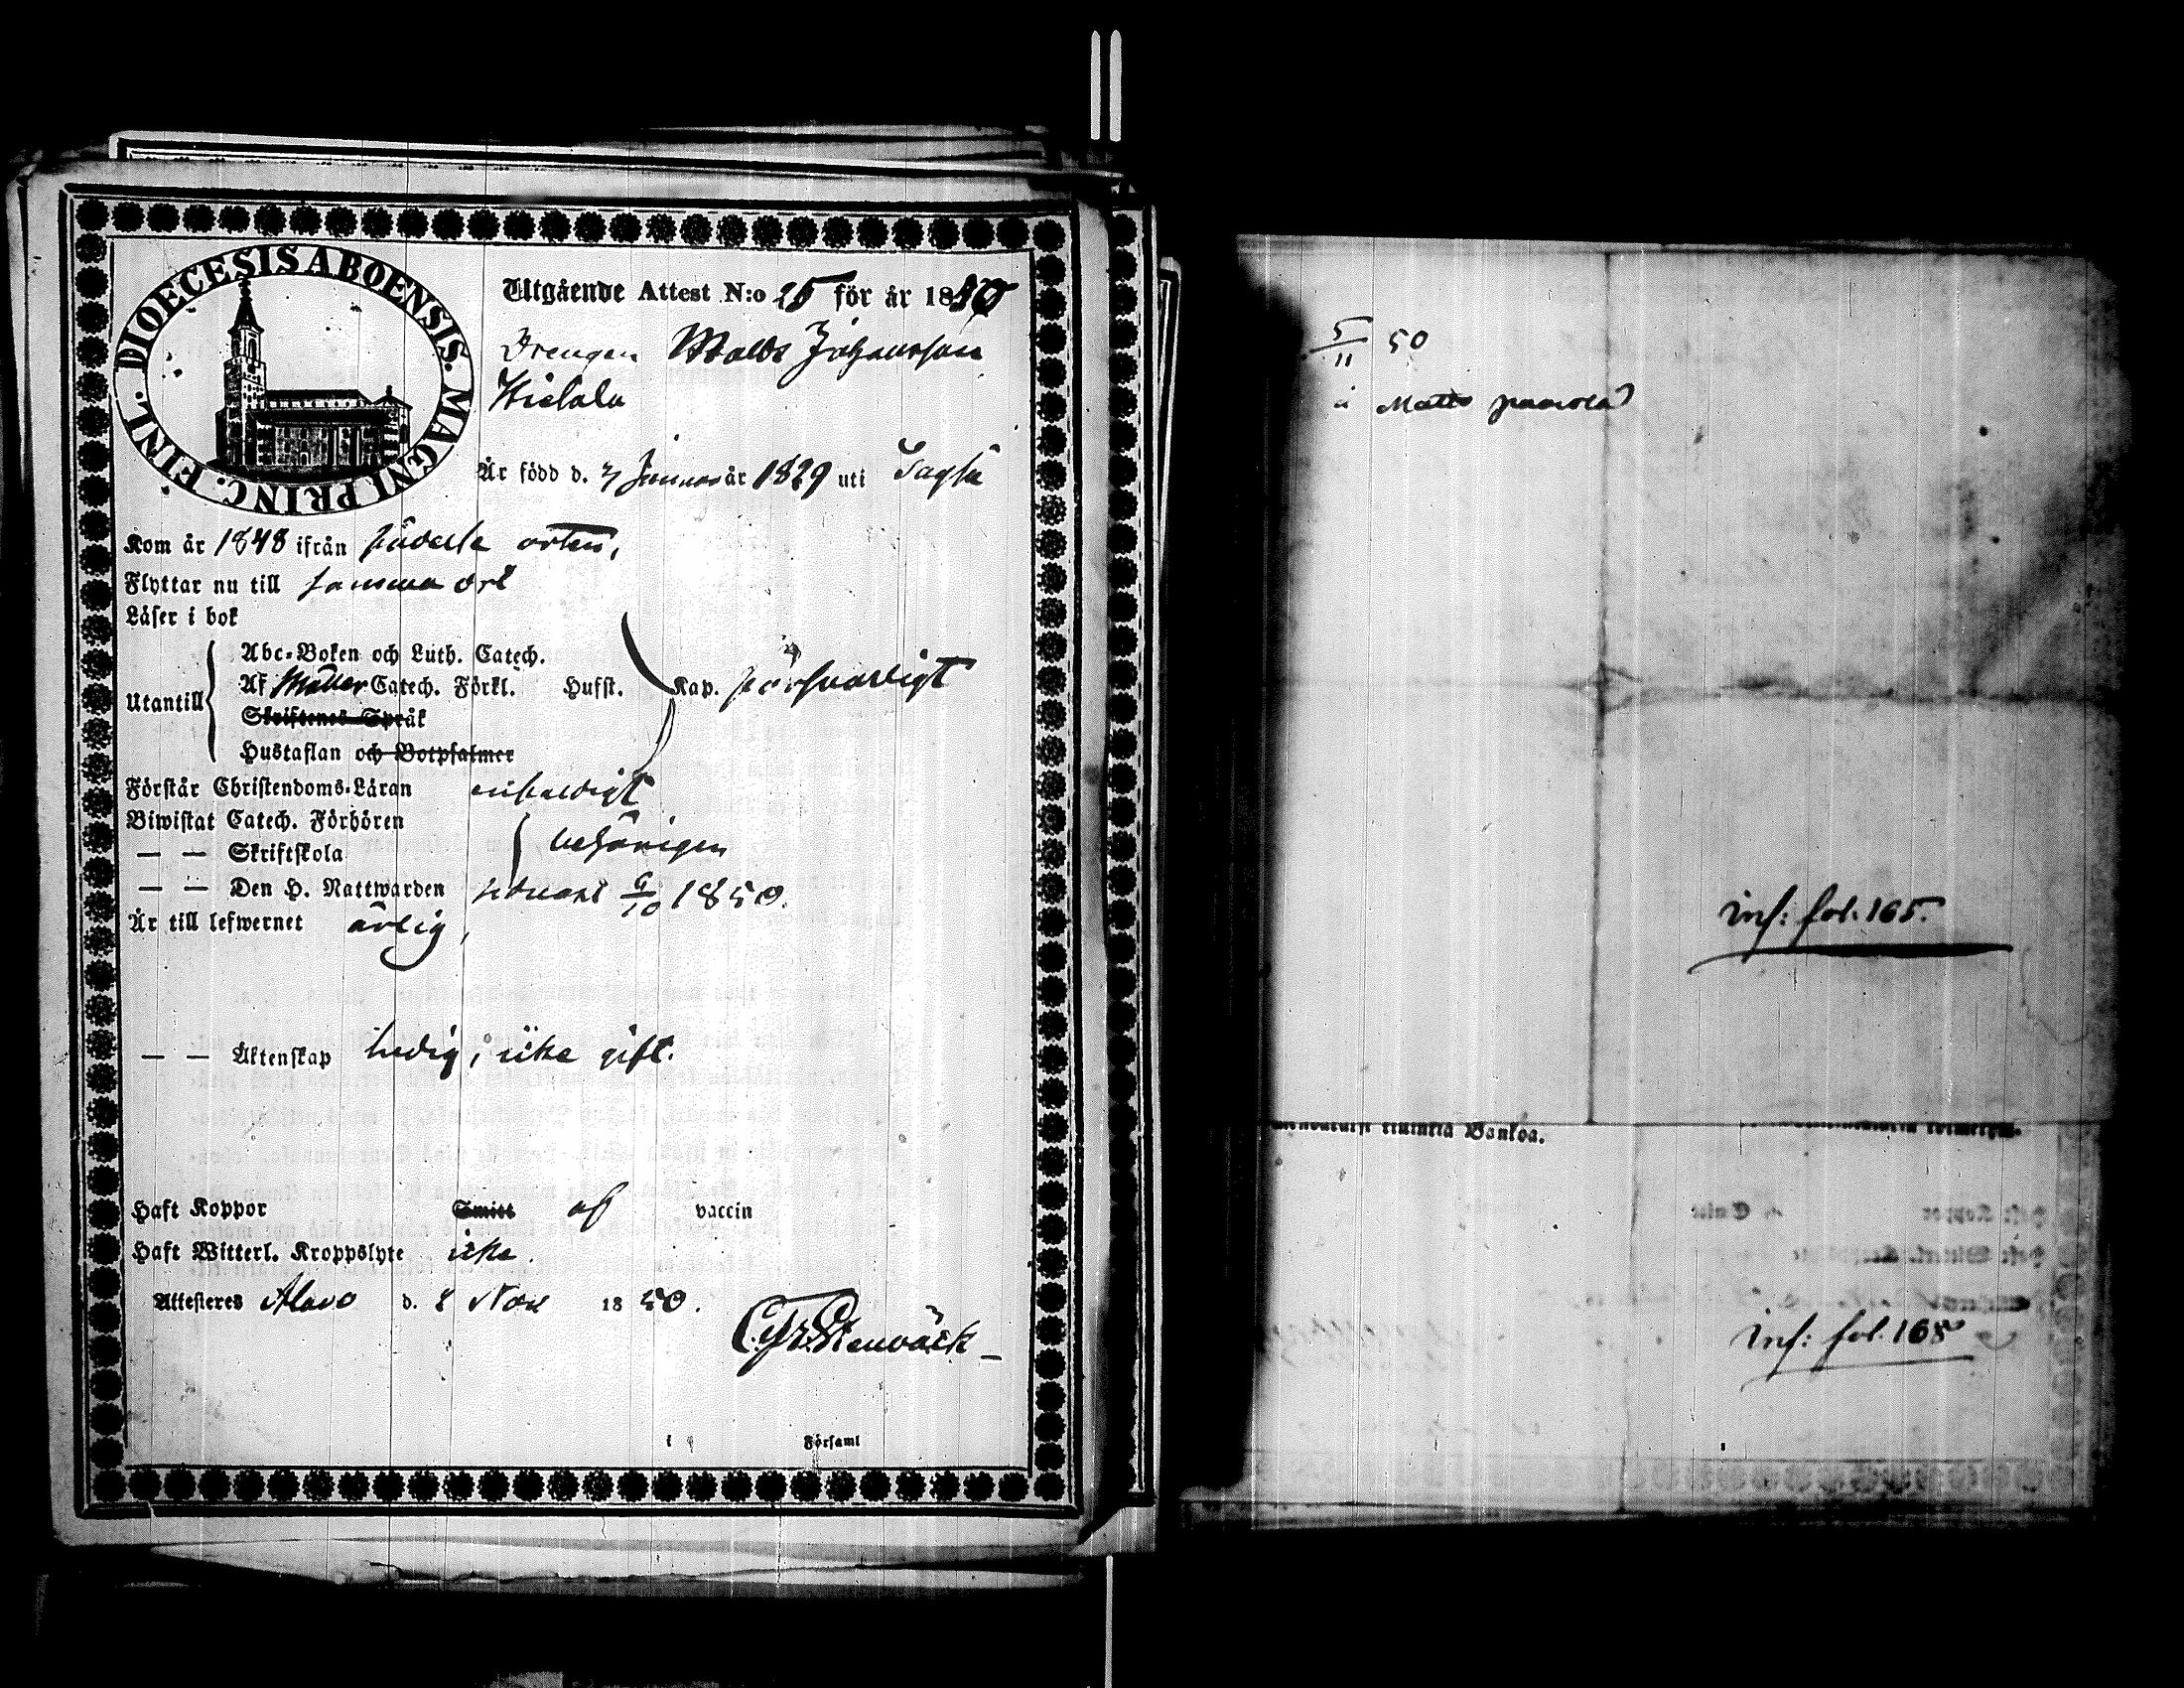 DIOECESIS ABOENSIS. MAGNI PRINC. FINL.
Utgående Attest N:o 25 för år 1850
Drengen Matts Johansson
Hietala
Är född d. 7 Januar år 1829 uti Töysä
Kom år 1848 ifrån födelse orten,
Flyttar nu till samma ort
Läser i bok
Utantill
Abc-Boken och Luth. Catech.
Af Möller Catech. Förkl. Husst. Kap. försvarligt
Skriftenes Språk
Hustaflan och Botpsalmer
Förstår Christendoms-Läran enfaldigt
Biwistat Catech. Förhören
— — Skriftskola behörigen
— — Den H. Nattwarden senast 6/10 1850.
Är till lefwernet ärlig,
— — Äktenskap ledig, icke gift.
Haft Koppor Smitt af vaccin
Haft Witterl. Kroppslyte icke
Attesteres Alavo d. 8 Nov 1850.
C. Fr. Stenbäck
i Församl
5/11 50
Matts
Inf: fol. 165.
Bankoa.
Inf: fol. 168